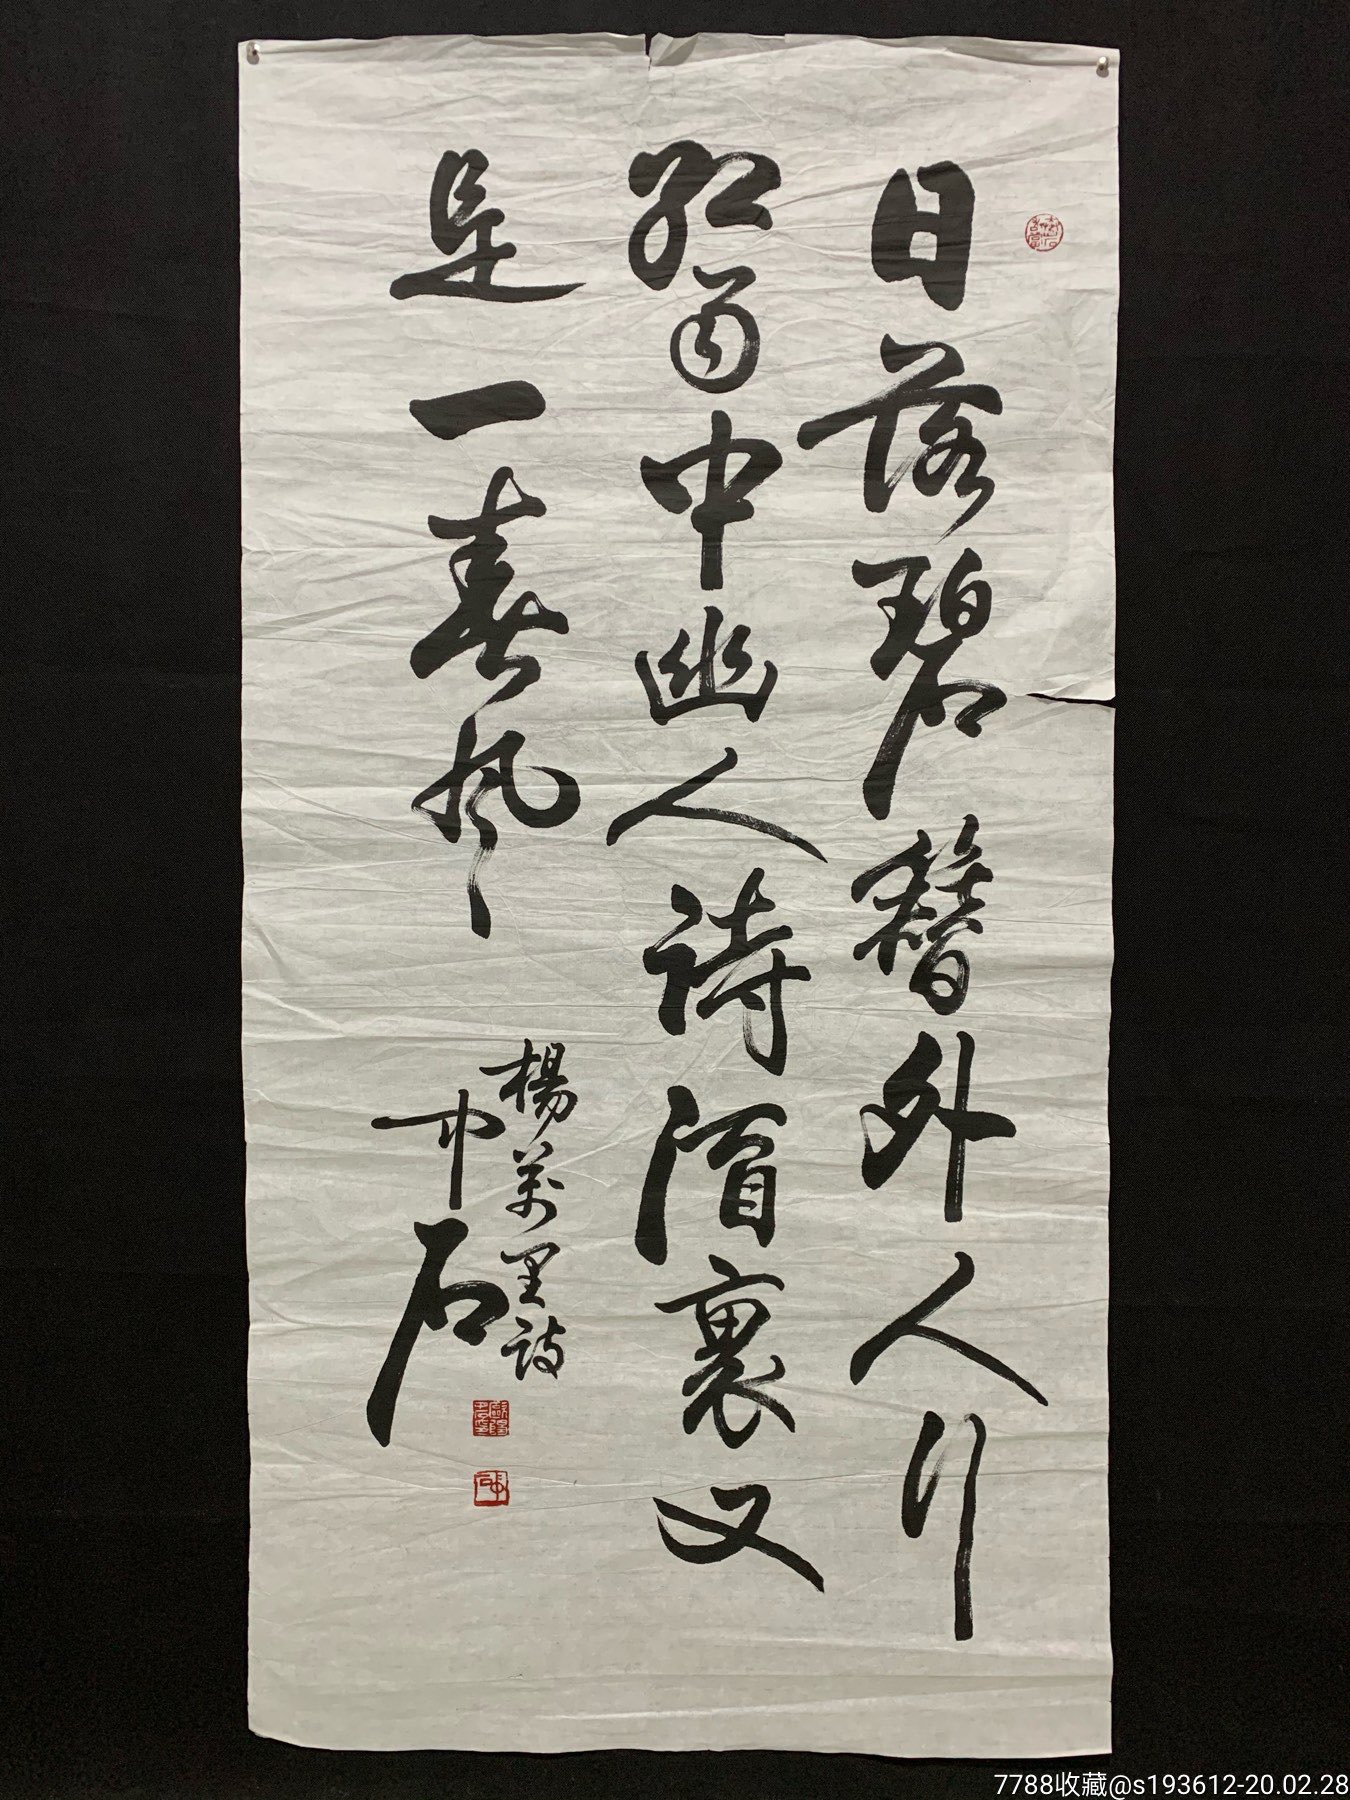 日落碧簪外人行
紅雨中幽人詩酒裏又
是一春風
楊萬里詩
中石
7788收藏@s193612-20.02.28